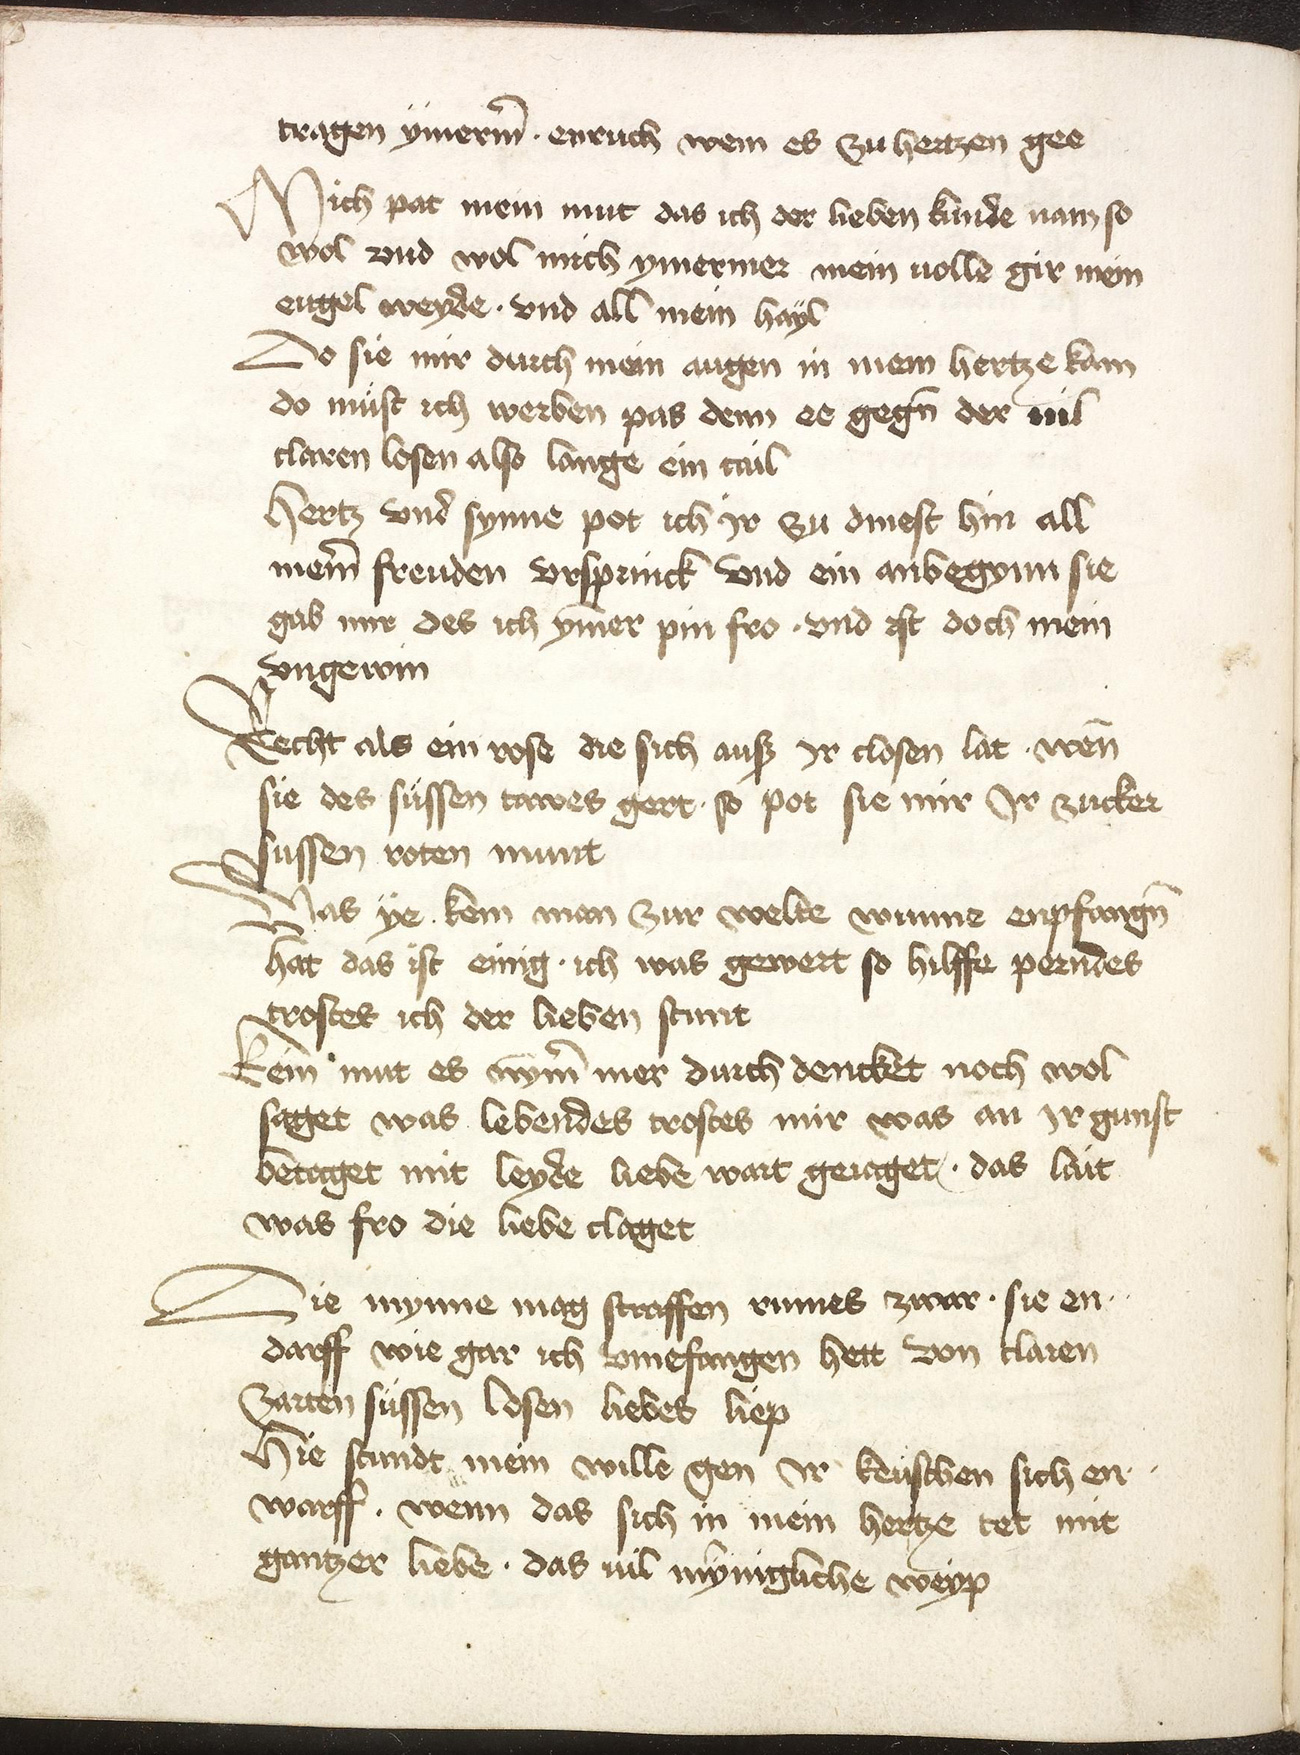 tragen ÿmerm̄ · enruch wem es zu hertzen gee
Mich pat mein mut das ich der lieben kunde nam so
wol vnd wol mich ymermer mein uolle gir mein
eugel weyde · vnd all mein haÿl
Do sie mir durch mein augen in mein hertze kam
do müst ich werben pas denn ee gegn̄ der uil
claren losen also lange ein tail
Hertz vnd synne pot ich Ir zu dinest hin all
mein̄ freuden vrsprinck vnd ein anbegynn sie
gab mir des ich ym̄er pin fro · vnd ist doch mein
vngewin
Recht als ein rose die sich auß Ir closen lat · wen̄
sie des süssen tawes gert · so pot sie mir Ir zucker
sussen roten munt
Was ÿe kein man zur welde wunne enpfangn̄
hat das ist einig · ich was gewert so hilffe perndes
trostes ich der lieben stunt
Kein mut es nym̄ mer durch dencket noch wol
saget was lebendes trostes mir was an Ir gunst
betaget mit leyde liebe wart geiaget · das lait
was fro die liebe claget
Die mynne mag straffen rumes zwar · sie en
darff wie gar ich vmefangen hett von claren
zarten süssen losen liebes liep
Hie stundt mein wille gen Ir keuschen sich en
warff · wenn das sich in mein hertze tet mit
gantzer liebe · das uil mÿnigliche weyp